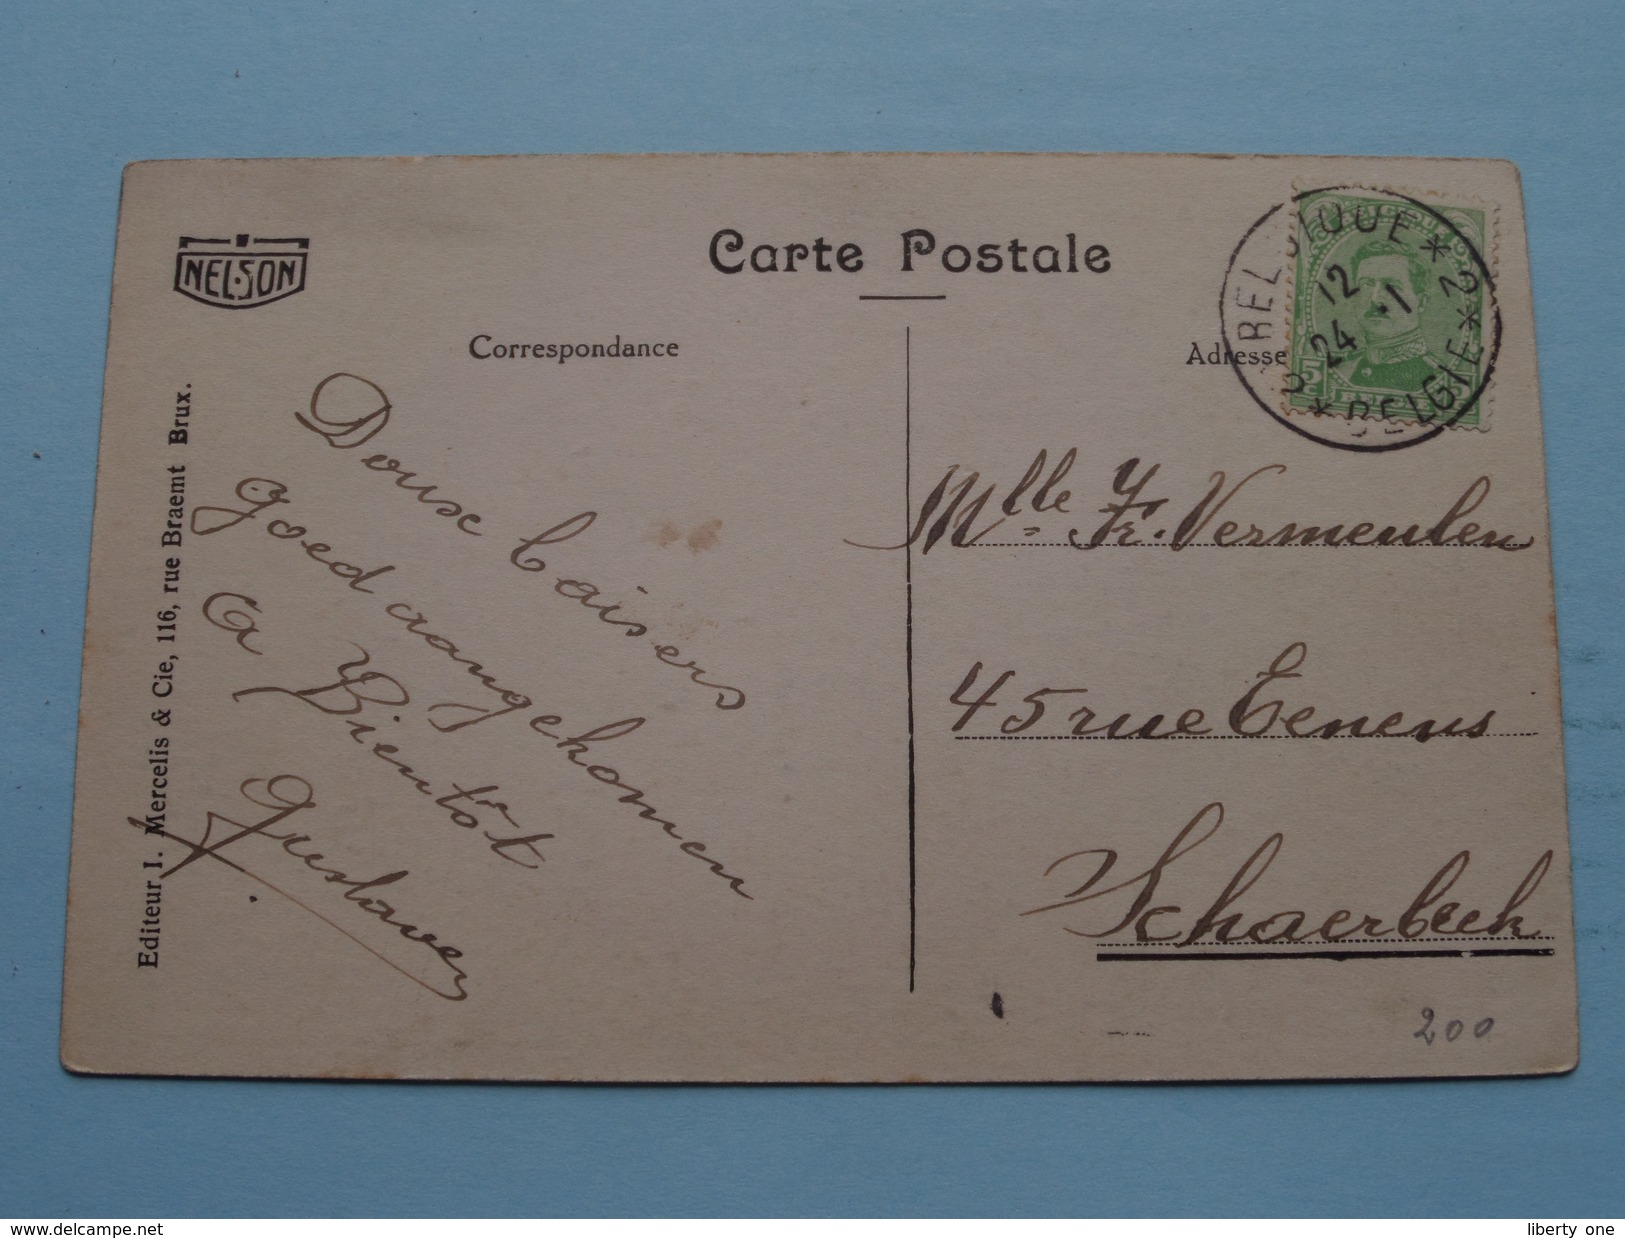 NELSON
Carte Postale
Correspondance
Adresse
BELGIQUE * 2 * BELGIE *
12
24 .1
5 5
Editeur I. Mercelis & Cie, 116, rue Braemt Brux.
Douse baisers
goed aangekomen
A Bientôt
Mlle Fr. Vermeulen
45 rue Eenens
Schaerbeek
200
www.delcampe.net
liberty one